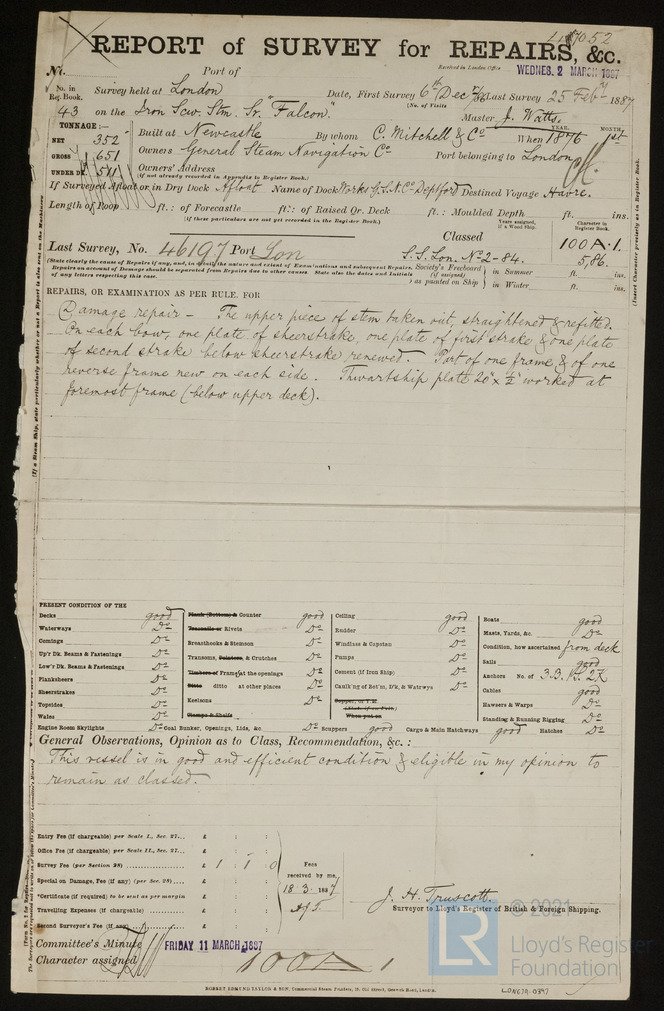 REPORT of SURVEY for REPAIRS, &c.
No. Port of Received in London Office WEDNES. 2 MARCH 1887
No. in Reg. Book. Survey held at London Date, First Survey 6th Dec /86 Last Survey 25 Feby 1887
(No. of Visits
43 on the Iron Scw. Stm. Sr. "Falcon" Master J. Watts
TONNAGE:—
NET 352
GROSS 651
UNDER DK 511
Built at Newcastle By whom C. Mitchell & Co When 1876 MONTH 1st
YEAR.
Owners General Steam Navigation Co Port belonging to London
Owners' Address
(If not already recorded in Appendix to Register Book.)
If Surveyed Afloat or in Dry Dock Afloat Name of Dock Works G.S.N.Co Deptford Destined Voyage Havre.
Length of Poop ft.: of Forecastle ft.: of Raised Qr. Deck ft.: Moulded Depth ft. ins.
(If these particulars are not yet recorded in the Register Book.)
Years assigned, if a Wood Ship.
Character in Register Book.
Last Survey, No. 46197 Port Lon Classed 100A.1.
S.S. Lon. No 2-84. 5,86.
(State clearly the cause of Repairs if any, and, in detail, the nature and extent of Examinations and subsequent Repairs.
Repairs on account of Damage should be separated from Repairs due to other causes. State also the dates and initials of any letters respecting this case.
Society's Freeboard (if assigned) as painted on Ship in Summer ft. ins.
in Winter ft. ins.
REPAIRS, OR EXAMINATION AS PER RULE, FOR
Damage repair — The upper piece of stem taken out, straightened & refitted.
On each bow, one plate of sheerstrake, one plate of first strake & one plate
of second strake below sheerstrake renewed. Part of one frame & of one
reverse frame new on each side. Thwartship plate 20" x ½" worked at
foremost frame (below upper deck).
PRESENT CONDITION OF THE
Decks good
Waterways Do
Comings Do
Up'r Dk. Beams & Fastenings Do
Low'r Dk. Beams & Fastenings Do
Planksheers Do
Sheerstrakes Do
Topsides Do
Wales Do
Engine Room Skylights Do
Plank (Bottom) & Counter good
Treenails or Rivets Do
Breasthooks & Stemson Do
Transoms, Pointers, & Crutches Do
Timbers of Frame at the openings Do
Ditto ditto at other places Do
Keelsons Do
Clamps & Shelfs
Coal Bunker, Openings, Lids, &c. Do
Ceiling good
Rudder Do
Windlass & Capstan Do
Pumps Do
Cement (if Iron Ship) Do
Caulk'ng of Bot'm, D'k, & Watrwys Do
When put on
Scuppers good Cargo & Main Hatchways good Hatches Do
Boats good
Masts, Yards, &c. Do
Condition, how ascertained from deck
Sails good
Anchors No. of 3.B.
Cables good
Hawsers & Warps Do
Standing & Running Rigging Do
General Observations, Opinion as to Class, Recommendation, &c.:
This vessel is in good and efficient condition & eligible in my opinion to
remain as classed.
Entry Fee (if chargeable) per Scale I., Sec. 27... £ : :
Office Fee (if chargeable) per Scale II., Sec. 27... £ : :
Survey Fee (per Section 28) £ 1 : 1 : 0
Special on Damage, Fee (if any) (per Sec. 28) £ : :
*Certificate (if required) to be sent as per margin £ : :
Travelling Expenses (if chargeable) £ : :
Second Surveyor's Fee (if any) £ : :
Fees received by me,
18.3.1887
J. H. Truscott.
Surveyor to Lloyd's Register of British & Foreign Shipping.
Committee's Minute FRIDAY 11 MARCH 1887
Character assigned 100A1
ROBERT EDMUND TAYLOR & SON, Commercial Steam Printers, 19, Old Street, Goswell Road, London.
LON679-0397
© 2021
LR
Lloyd's Register
Foundation